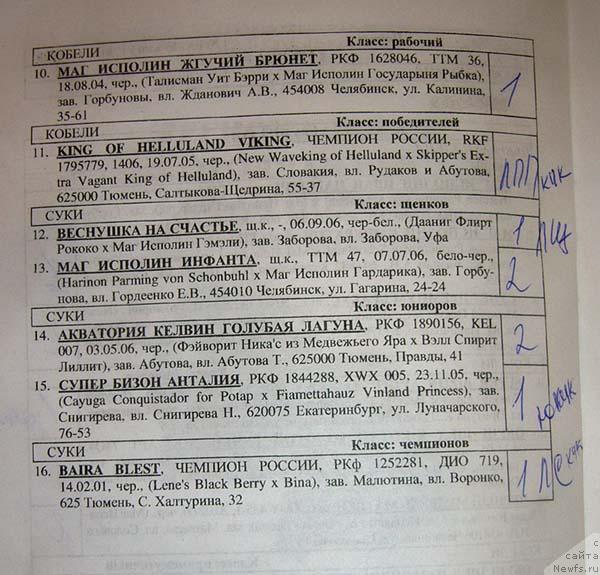 КОБЕЛИ Класс: рабочий
10. МАГ ИСПОЛИН ЖГУЧИЙ БРЮНЕТ, РКФ 1628046, ТТМ 36,
18.08.04, чер., (Талисман Уит Бэрри х Маг Исполин Государыня Рыбка),
зав. Горбуновы, вл. Жданович А.В., 454008 Челябинск, ул. Калинина,
35-61
1
КОБЕЛИ Класс: победителей
11. KING OF HELLULAND VIKING, ЧЕМПИОН РОССИИ, RKF
1795779, 1406, 19.07.05, чер., (New Waveking of Helluland x Skipper's Ex-
tra Vagant King of Helluland), зав. Словакия, вл. Рудаков и Абутова,
625000 Тюмень, Салтыкова-Щедрина, 55-37
ЛПП КЧК
СУКИ Класс: щенков
12. ВЕСНУШКА НА СЧАСТЬЕ, щ.к., -, 06.09.06, чер-бел., (Дааниг Флирт
Рококо х Маг Исполин Гэмэли), зав. Заборова, вл. Заборова, Уфа
1 ЛЩ
13. МАГ ИСПОЛИН ИНФАНТА, щ.к., ТТМ 47, 07.07.06, бело-чер.,
(Harinon Parming von Schonbuhl х Маг Исполин Гардарика), зав. Горбу-
нова, вл. Гордеенко Е.В., 454010 Челябинск, ул. Гагарина, 24-24
2
СУКИ Класс: юниоров
14. АКВАТОРИЯ КЕЛВИН ГОЛУБАЯ ЛАГУНА, РКФ 1890156, KEL
007, 03.05.06, чер., (Фэйворит Ника'с из Медвежьего Яра х Вэлл Спирит
Лиллит), зав. Абутова, вл. Абутова Т., 625000 Тюмень, Правды, 41
2
15. СУПЕР БИЗОН АНТАЛИЯ, РКФ 1844288, XWX 005, 23.11.05, чер.,
(Cayuga Conquistador for Potap x Fiamettahauz Vinland Princess), зав.
Снигирева, вл. Снигирева Н., 620075 Екатеринбург, ул. Луначарского,
76-53
1
СУКИ Класс: чемпионов
16. BAIRA BLEST, ЧЕМПИОН РОССИИ, РКф 1252281, ДИО 719,
14.02.01, чер., (Lene's Black Berry x Bina), зав. Малютина, вл. Воронко,
625 Тюмень, С. Халтурина, 32
1
с
сайта
Newfs.ru